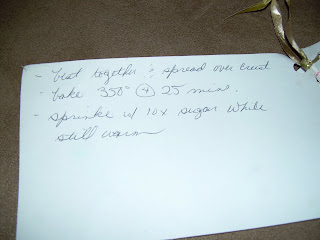 - Beat together & spread over crust
- bake 350° + 25 mins.
- sprinke w/ 10x sugar while
still warm